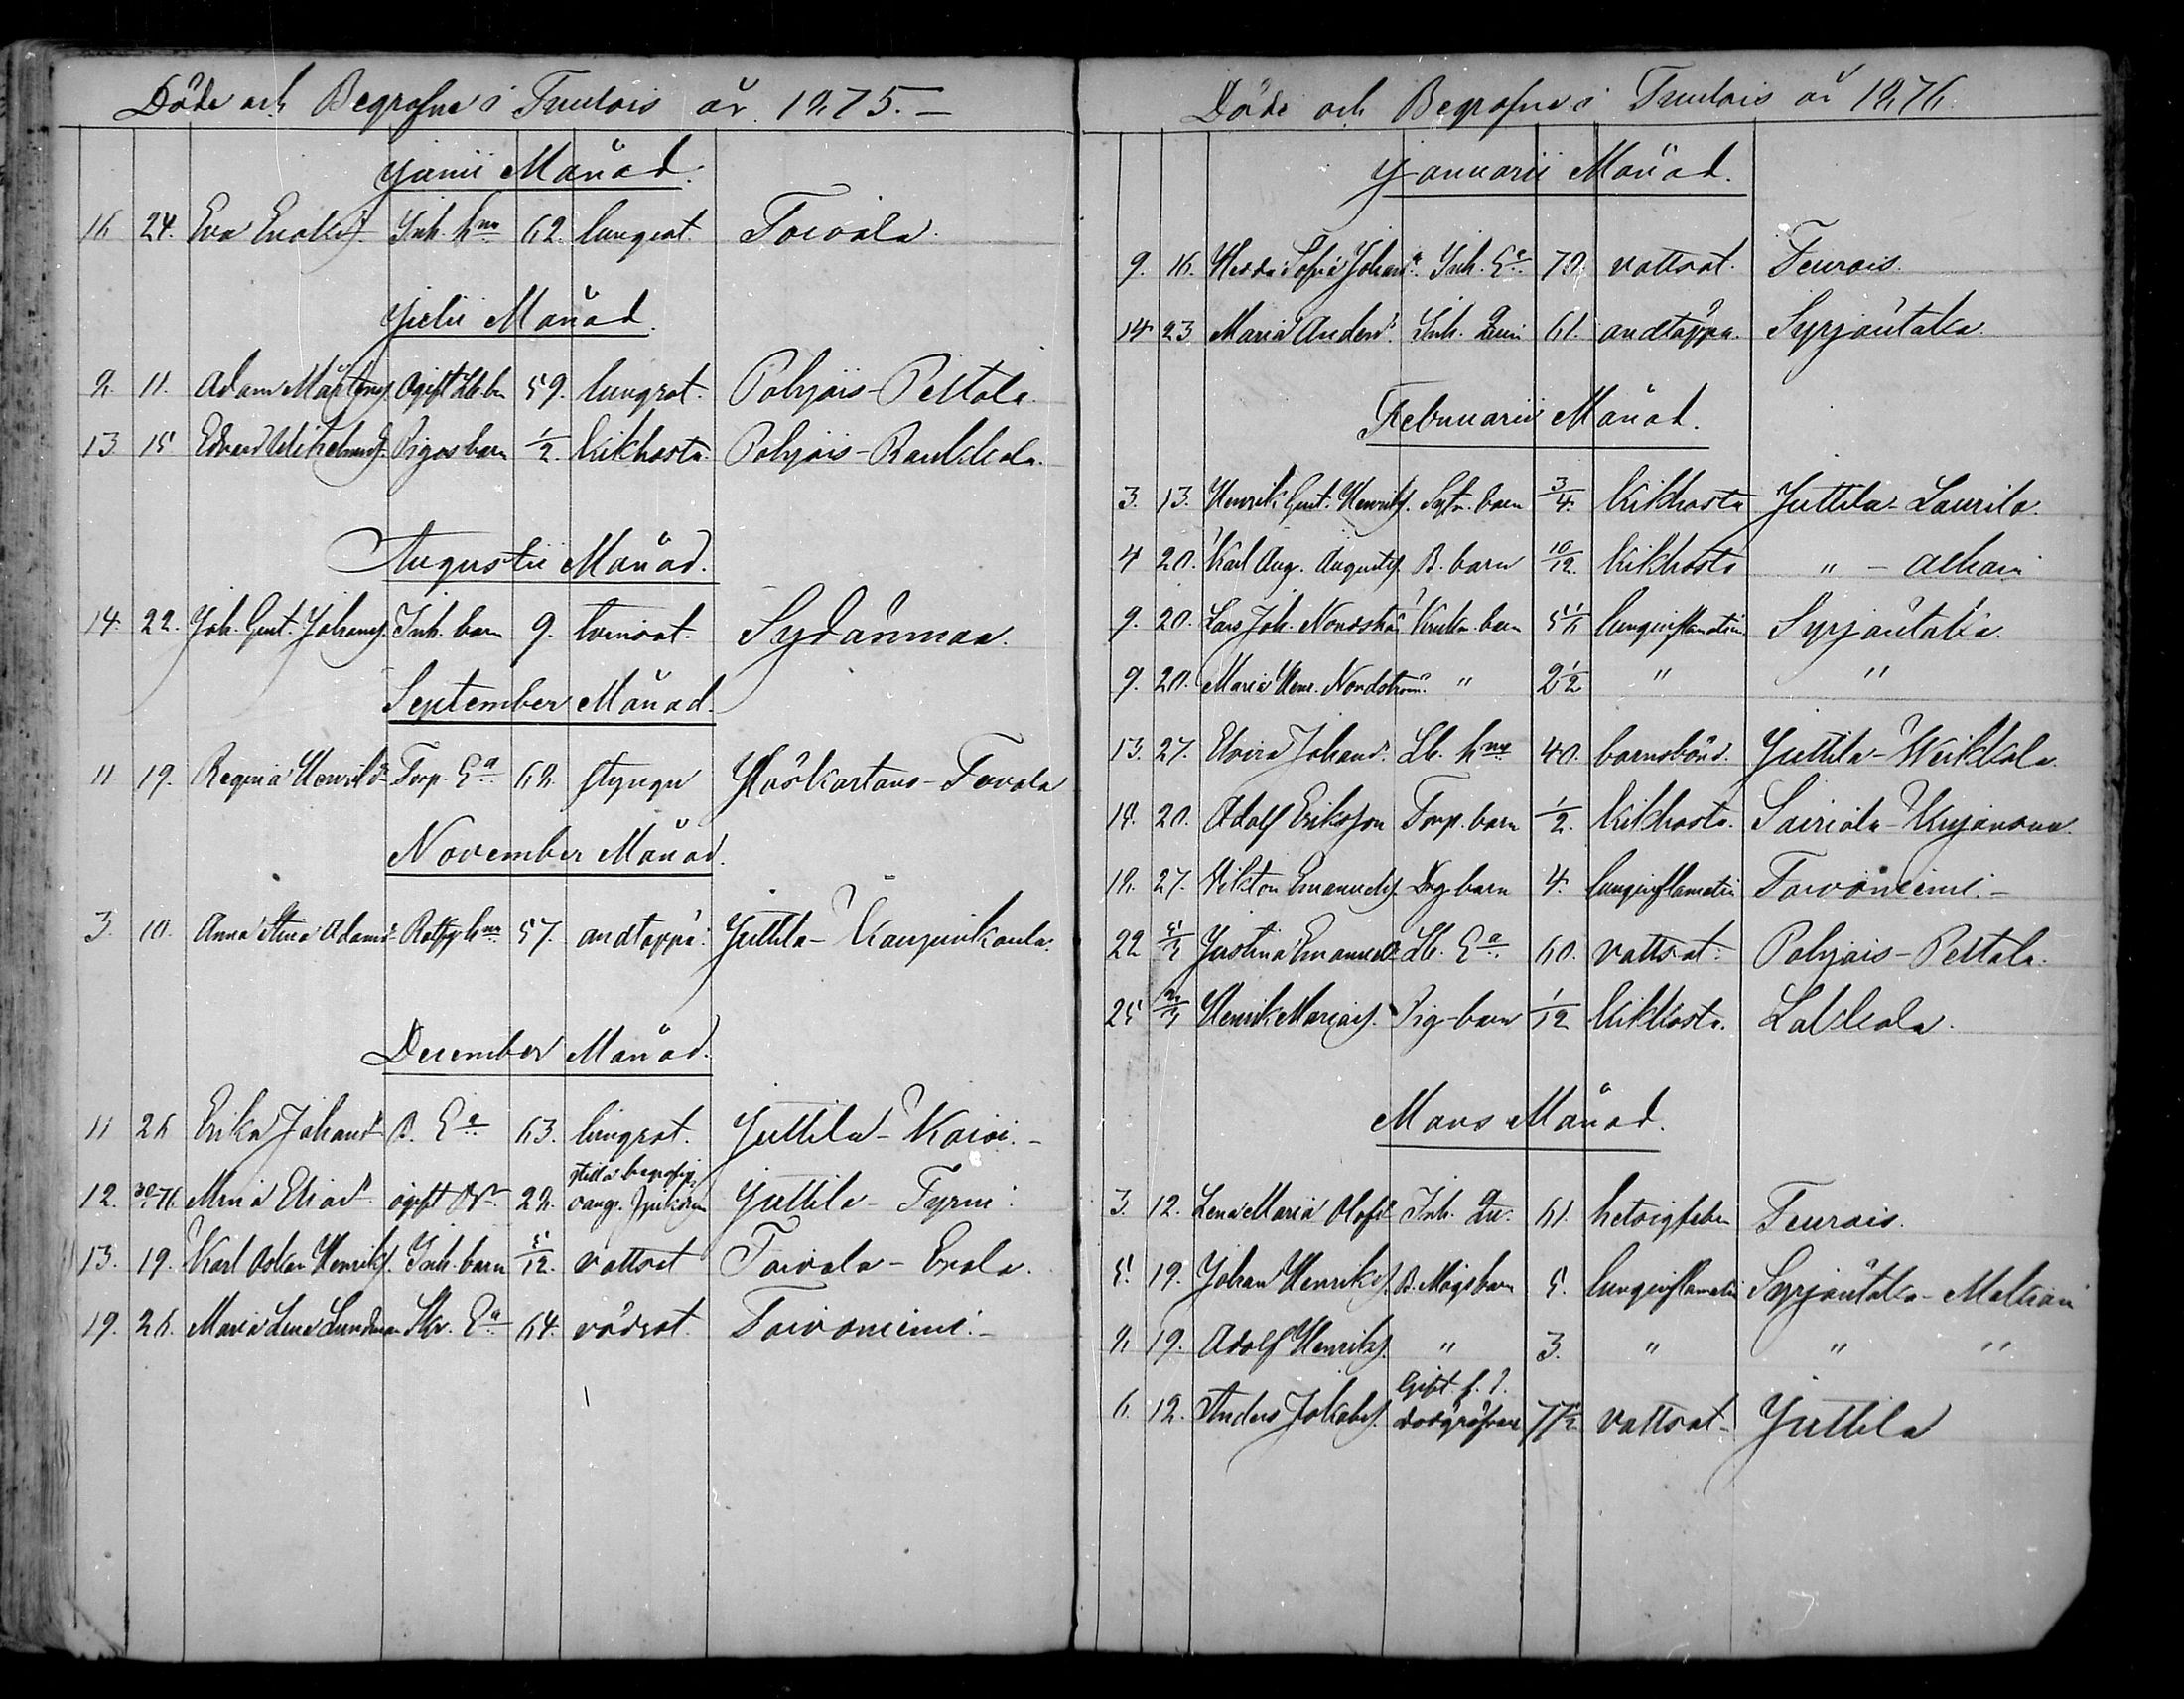 Döde och Begrafne i Tuulois år 1875. –
Junii Månad.
16 24. Eva Eriksd. Inh. hru 62. lungsot. Toivala.
Julii Månad.
2. 11. Adam Mårtenss. Ogift 59. lungsot. Pohjois-Pettola.
13 15 Edvard Wilhelmss. Pigos barn ½ kikhosta. Pohjois-Raukkola.
Augustii Månad.
14. 22. Joh. Gust. Johanss. Inh. barn 9. tvinsot. Sydänmaa.
September Månad.
11. 19. Regina Henriksd. Torp. Ea 68. styngn Håskartano-Tovala
November Månad.
3. 10. Anna Stina Adamsd. hru 57. andtäppa. Juttila-
December Månad.
11 26 Erika Johansd. B. Ea 63. lungsot. Juttila-Koivi. –
stilla begrafn.
12. 30/1 76. Mina Eliasd. ogift 22. Juttila-Tyrni.
13. 19. Karl Oskar Henrikss. Inh. barn 5/12. vattsot Toivola-Erola.
19. 26. Maria Lena Lundman Skr. Ea 64. rödsot. Toivoniemi. –
Döde och Begrafne i Tuulois år 1876.
Januarii Månad.
9. 16. Hedda Sofia Johansd. Inh. Ea 70. vattsot. Teurois.
14 23 Maria Andersd. Inh. 61. andtäppa. Syrjäntaka.
Februarii Månad.
3. 13. Henrik Gust. Henrikss. Sytn. barn 3/4. kikhosta Juttila-Laurila.
4 20. Karl Aug. Augustss. B. barn 10/12. kikhosta " –
9. 20. Lars Joh. Nordström barn 5 1/6 lunginflamation Syrjäntaka.
9. 20. Maria Henr. Nordström. " 2½ " "
13. 27. Elvira Johansd. Lb. hru 40. barnsbörd. Juttila-Weikkola.
18. 20. Adolf Eriksson Torp. barn ½. kikhosta. Sairiala-Kujansuu.
18. 27. Viktor Emanuelss. Drg barn 4. lunginflamation Toivoniemi. –
22 5/3 Justina Emanuelsd. Lb. Ea 60. vattsot. Pohjois-Pettola.
25 Henrik Mariass. Pig-barn 1/12 kikhosta. Lakkola.
Mars Månad.
3. 12. Lena Maria Olofsd. Inh. 61. hetsigfeber Teurois.
5. 19. Johan Henrikss. B. Mågs barn 5. lunginflamation Syrjäntaka-Mattari
8. 19. Adolf Henrikss. " 3. " " "
Gift. f. d.
6. 12. Anders Jakobss. dödgräfvare 77½ vattsot- Juttila